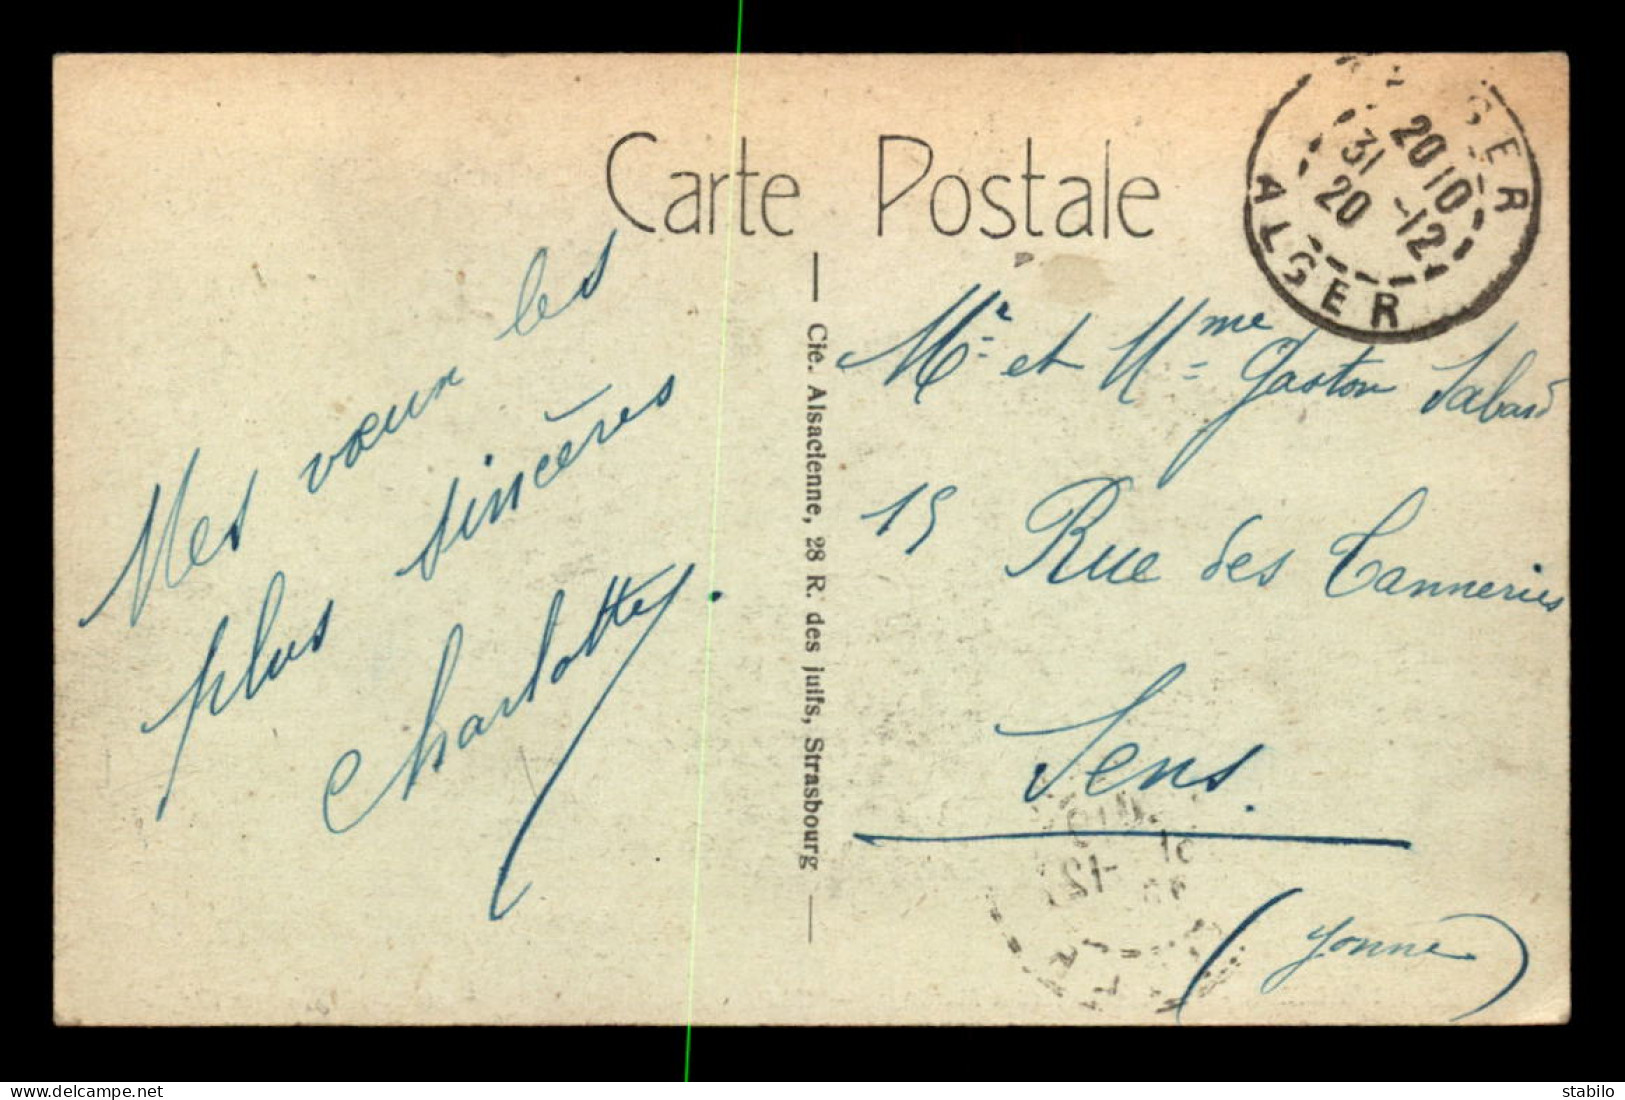 Carte Postale
ALGER
20 10
31 -12
20
ALGER
Mes vœux les
plus sincères
Charlotte.
— Cie. Alsacienne, 28 R. des juifs, Strasbourg —
Mr et Mme Gaston
15 Rue des Tanneries
Sens.
(Yonne)
31
-12
delcampe.net
stabilo